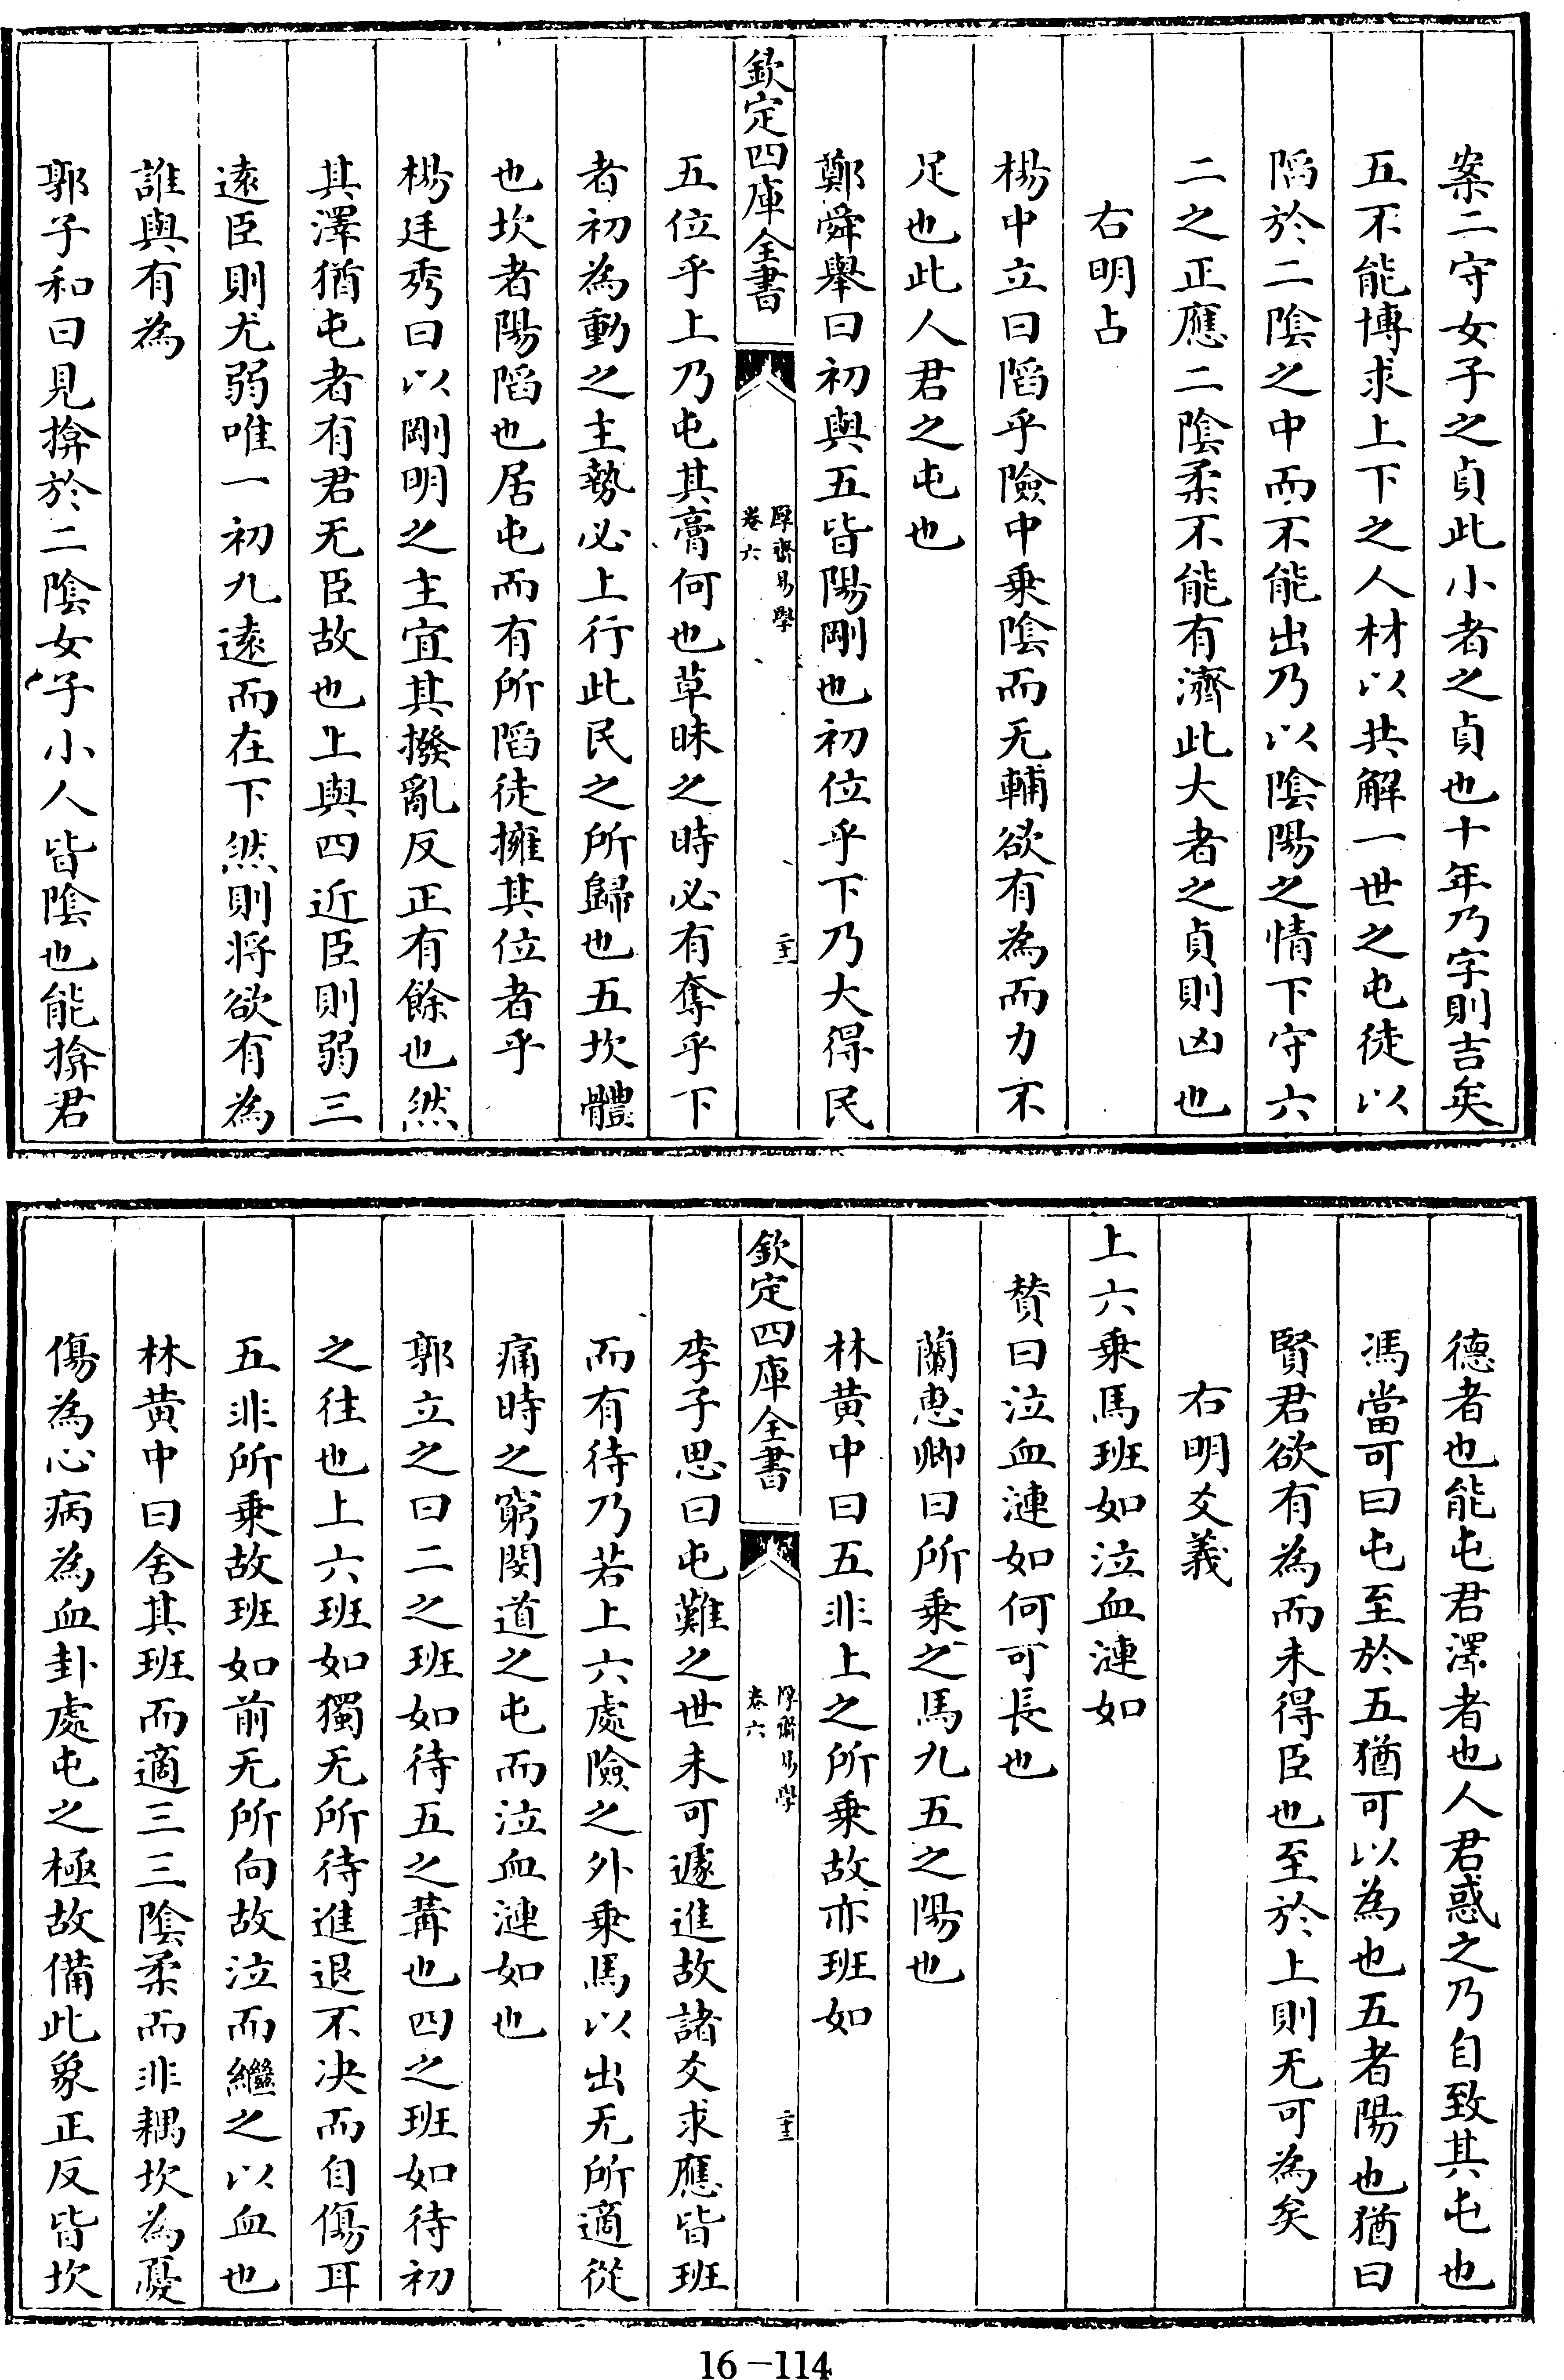 案二守女子之貞此小者之貞也十年乃字則吉矣
五不能博求上下之人材以共解一世之屯徒以
陷於二陰之中而不能出乃以陰陽之情下守六
二之正應二陰柔不能有濟此大者之貞則凶也
右明占
楊中立曰陷乎險中乗陰而无輔欲有為而力不
足也此人君之屯也
鄭舜舉曰初與五皆陽剛也初位乎下乃大得民
欽定四庫全書
厚齋易學
卷六
五位乎上乃屯其膏何也草昧之時必有奪乎下
者初為動之主勢必上行此民之所歸也五坎體
也坎者陽陷也居屯而有所陷徒擁其位者乎
楊廷秀曰以剛明之主宜其撥亂反正有餘也然
其澤猶屯者有君无臣故也上與四近臣則弱三
逺臣則尤弱唯一初九逺而在下然則将欲有為
誰與有為
郭子和曰見揜於二陰女子小人皆陰也能揜君
德者也能屯君澤者也人君惑之乃自致其屯也
馮當可曰屯至於五猶可以為也五者陽也猶曰
賢君欲有為而未得臣也至於上則无可為矣
右明爻義
上六乗馬班如泣血漣如
賛曰泣血漣如何可長也
蘭惠卿曰所乗之馬九五之陽也
林黄中曰五非上之所乗故亦班如
欽定四庫全書
厚齋易學
卷六
李子思曰屯難之世未可遽進故諸爻求應皆班
而有待乃若上六處險之外乗馬以出无所適從
痛時之窮閔道之屯而泣血漣如也
郭立之曰二之班如待五之冓也四之班如待初
之往也上六班如獨无所待進退不决而自傷耳
五非所乗故班如前无所向故泣而繼之以血也
林黄中曰舍其班而適三三陰柔而非耦坎為憂
傷為心病為血卦處屯之極故備此象正反皆坎
16-114